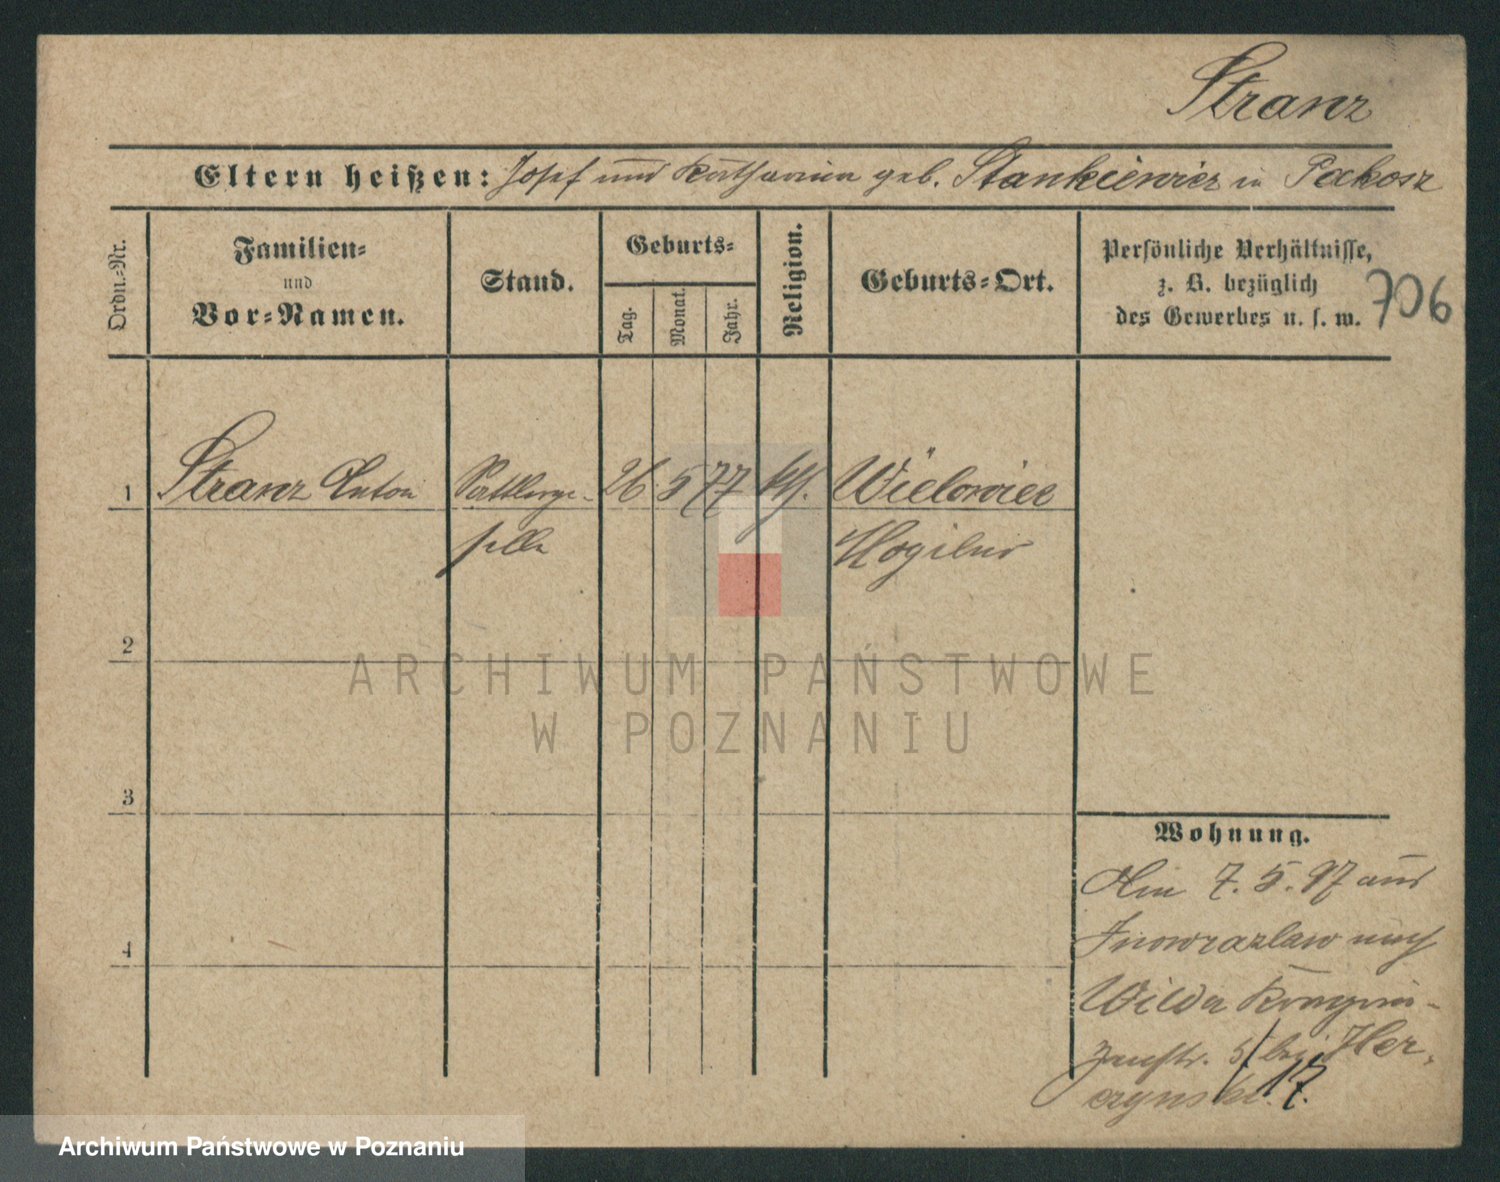 Stranz
Eltern heißen: Josef und Katharina geb. Stankiewicz in Pakosz
Ordn.-Nr.
Familien-
und
Vor-Namen.
Stand.
Geburts-
Tag.
Monat.
Jahr.
Religion.
Geburts-Ort.
Persönliche Verhältnisse,
z. B. bezüglich
des Gewerbes u. s. w.
706
1 Stranz Anton Sattlerge- 26 5 77 kth. Wielowiec
selle Mogilno
2
3
4
Wohnung.
Am 7. 5. 97 aus
Inowrazlaw nach
Wilda Kronprin-
zenstr. 5 bei Her-
czynski. 17.
ARCHIWUM PAŃSTWOWE
W POZNANIU
Archiwum Państwowe w Poznaniu